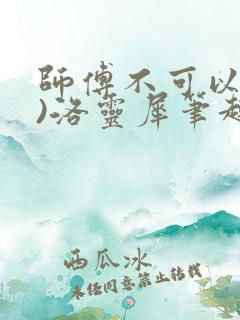 師傅不可以
)洛靈犀筆趣
西瓜冰
未经同意禁止转载